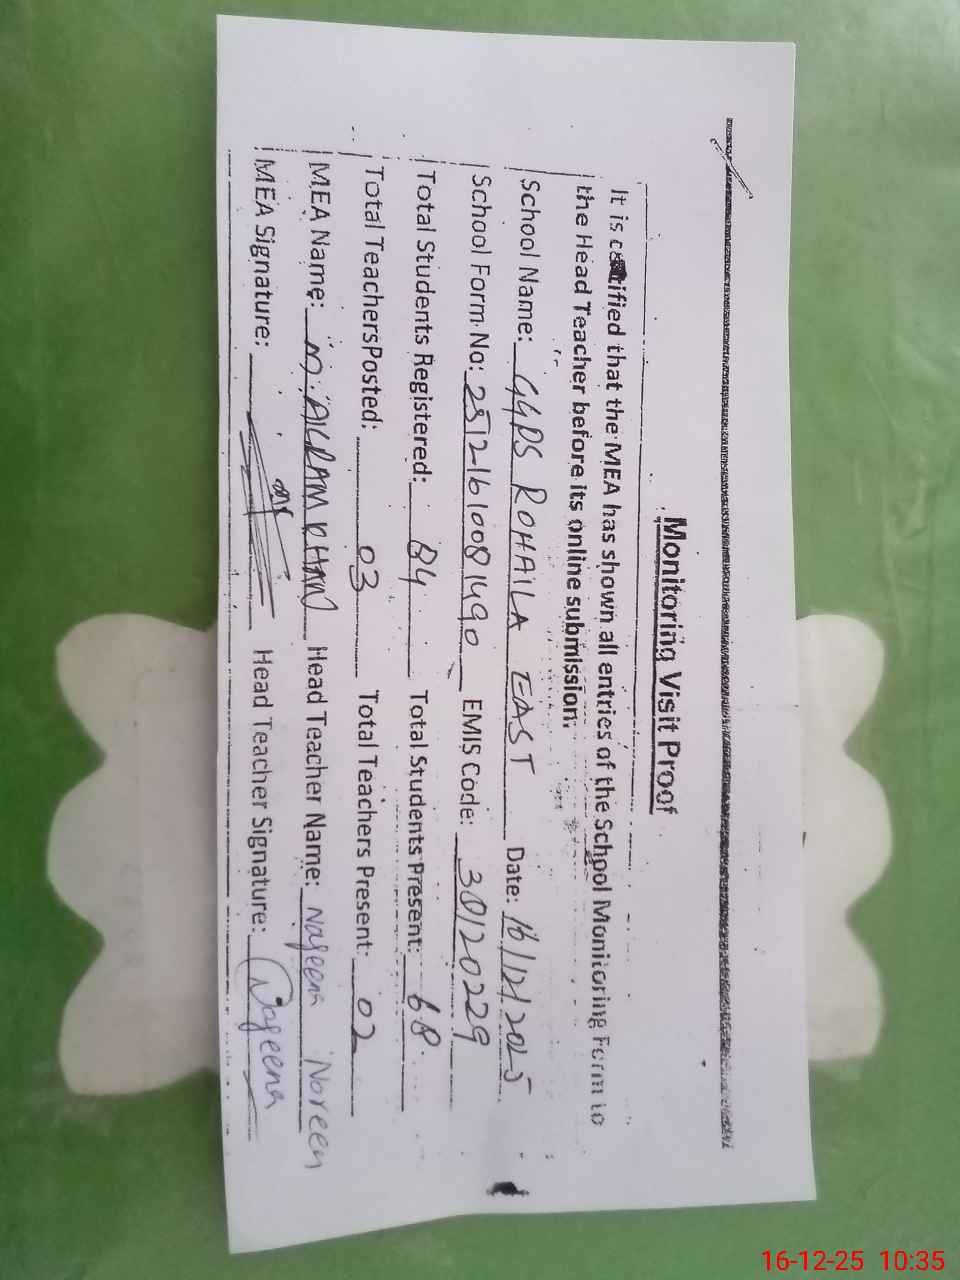 Monitoring Visit Proof
It is certified that the MEA has shown all entries of the School Monitoring Form to
the Head Teacher before its online submission.
School Name: GGPS ROHAILA EAST Date: 16/12/2025
School Form No: 25121610081490 EMIS Code: 38120229
Total Students Registered: 84 Total Students Present: 68
Total Teachers Posted: 03 Total Teachers Present: 02
MEA Name: M. AKRAM KHAN Head Teacher Name: Nageena Noreen
MEA Signature: Head Teacher Signature: Nageena
16-12-25 10:35